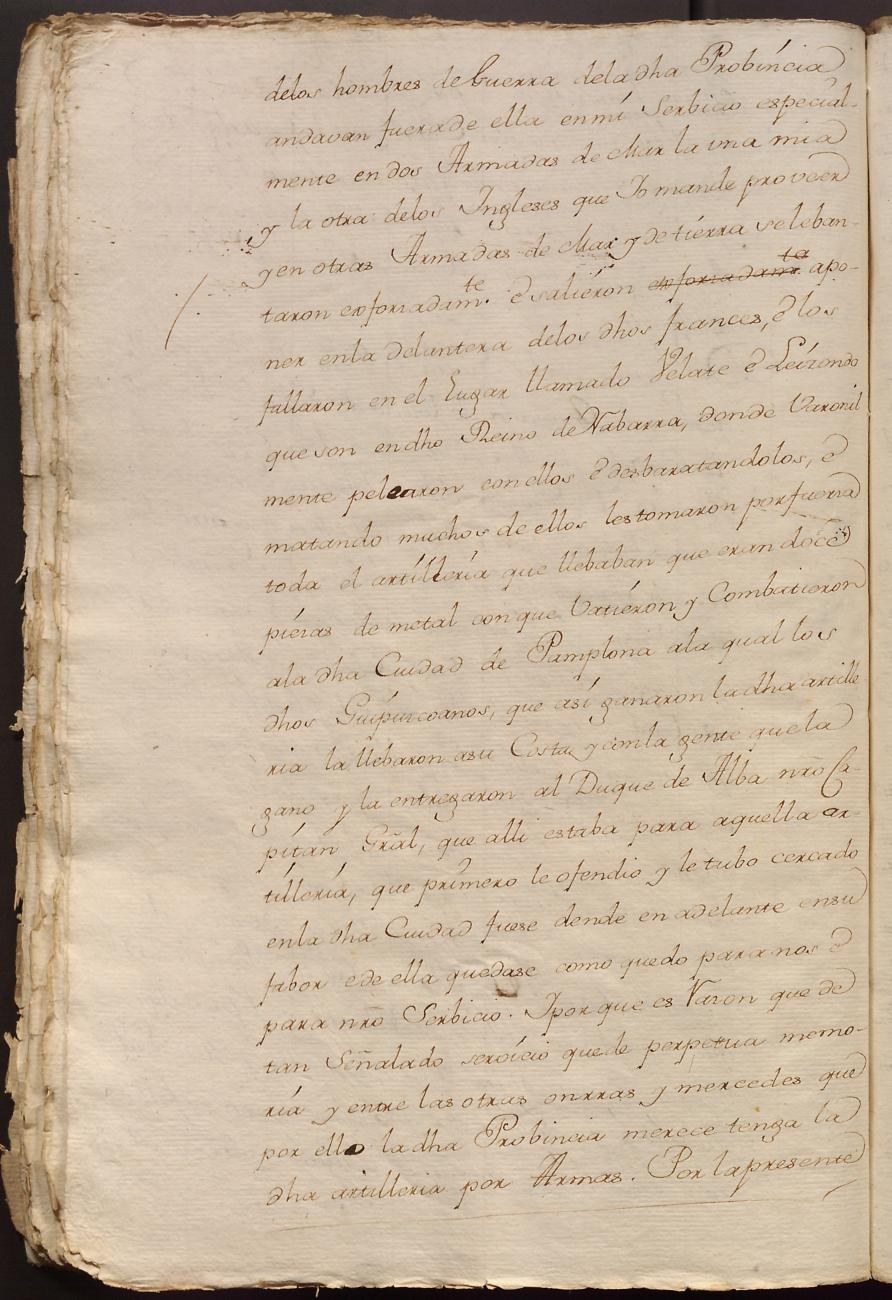 delos hombres de Guerra dela dha Probincia
andavan fuera de ella en mi Serbicio especial-
mente en dos Armadas de Mar la una mia
y la otra delos Ingleses que Io mande proveer
y en otras Armadas de Mar y de tierra se leban-
taron exforzadamte. é salieron exforzadamte. apo-
ner enla delantera delos dhos frances, é los
fallaron en el Lugar llamado Velate é Leizondo
que son en dho Reino de Nabarra, donde Varonil
mente pelearon con ellos é desbaratandolos, é
matando muchos de ellos les tomaron por fuerza
toda el artilleria que llebaban que eran doce
piezas de metal con que Vatieron y Combatieron
ala dha Ciudad de Pamplona ala qual los
dhos Guipuzcoanos, que asi ganaron la dha artille
ria la llebaron asu Costa y con la gente que la
gano y la entregaron al Duque de Alba nro Ca-
pitan Gral, que alli estaba para aquella ar-
tilleria, que primero le ofendio y le tubo cercado
en la dha Ciudad fuese dende en adelante en su
fabor e de ella quedase como quedo para nos é
para nro Serbicio. I por que es Razon que de
tan Señalado servicio quede perpetua memo-
ria y entre las otras onrras y mercedes que
por ello la dha Probincia merece tenga la
dha artilleria por Armas. Por la presente